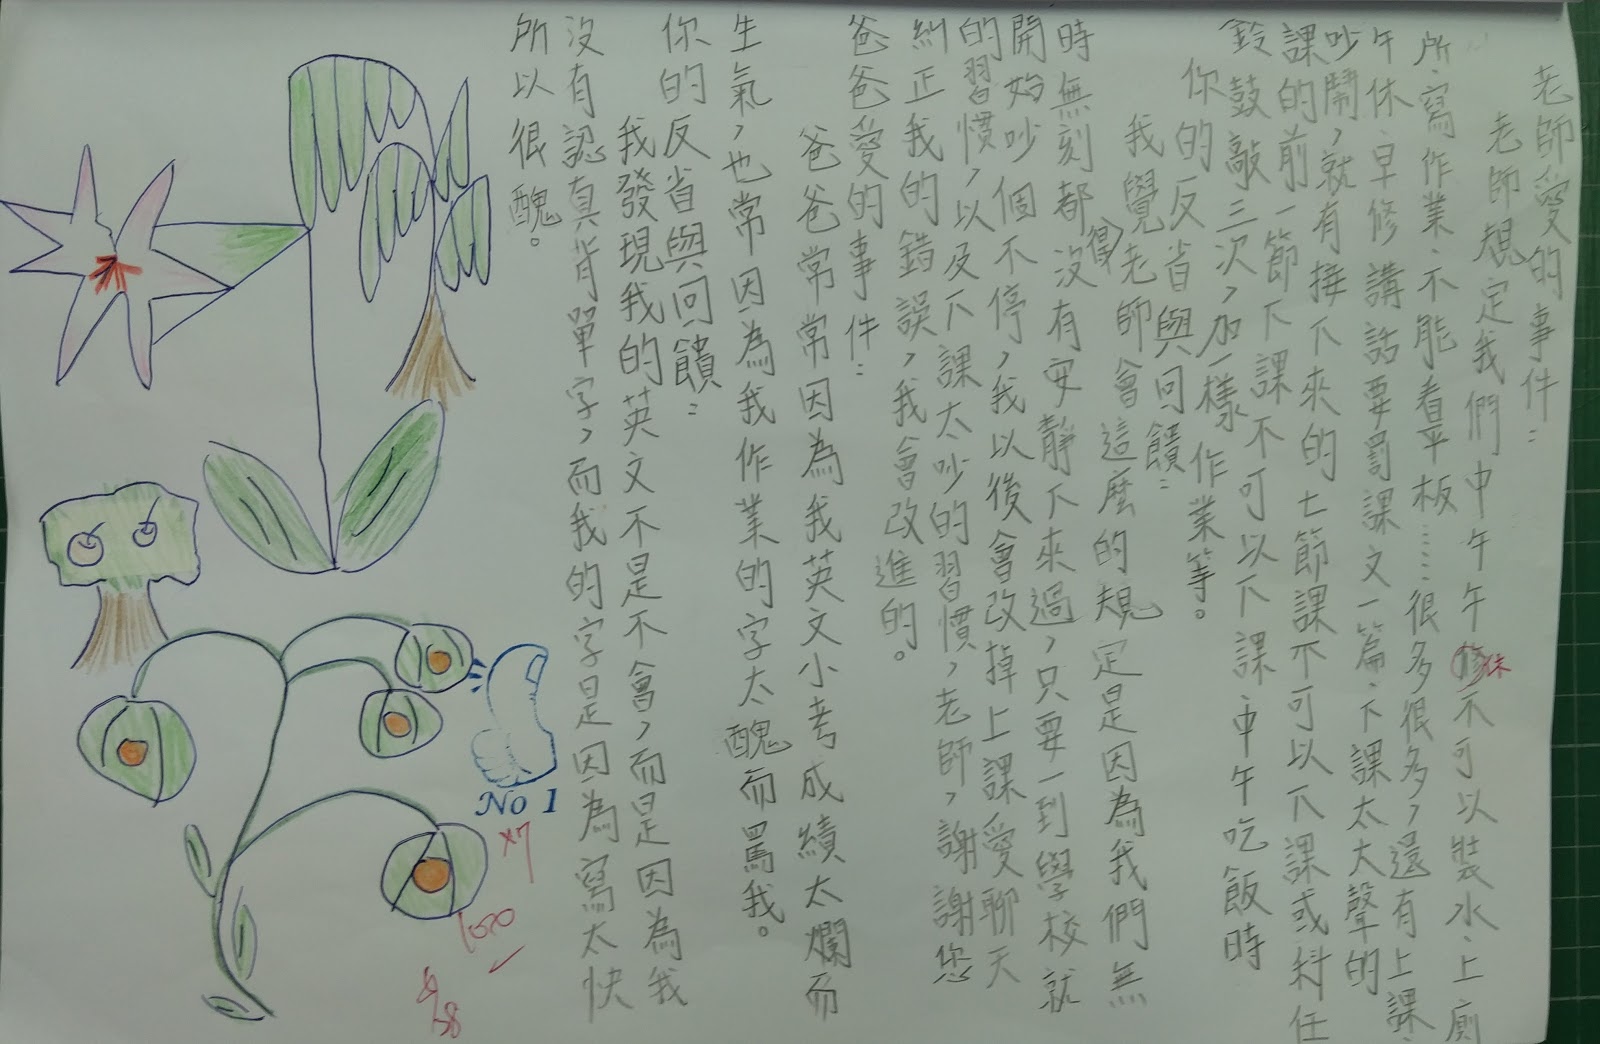 老師愛的事件：
老師規定我們中午午修休不可以裝水、上廁
所、寫作業、不能看平板……很多很多，還有上課、
午休、早修講話要罰課文一篇、下課太大聲的
吵鬧，就有接下來的七節課不可以下課或科任
課的前一節下課不可以下課、中午吃飯時
鈴鼓敲三次，加一樣作業等。
你的反省與回饋：
我覺得老師會這麼的規定是因為我們無
時無刻都沒有安靜下來過，只要一到學校就
開始吵個不停，我以後會改掉上課愛聊天
的習慣，以及下課太吵的習慣，老師，謝謝您
糾正我的錯誤，我會改進的。
爸爸愛的事件：
爸爸常常因為我英文小考成績太爛而
生氣，也常因為我作業的字太醜而罵我。
你的反省與回饋：
我發現我的英文不是不會，而是因為我
沒有認真背單字，而我的字是因為寫太快
所以很醜。
No 1
x7